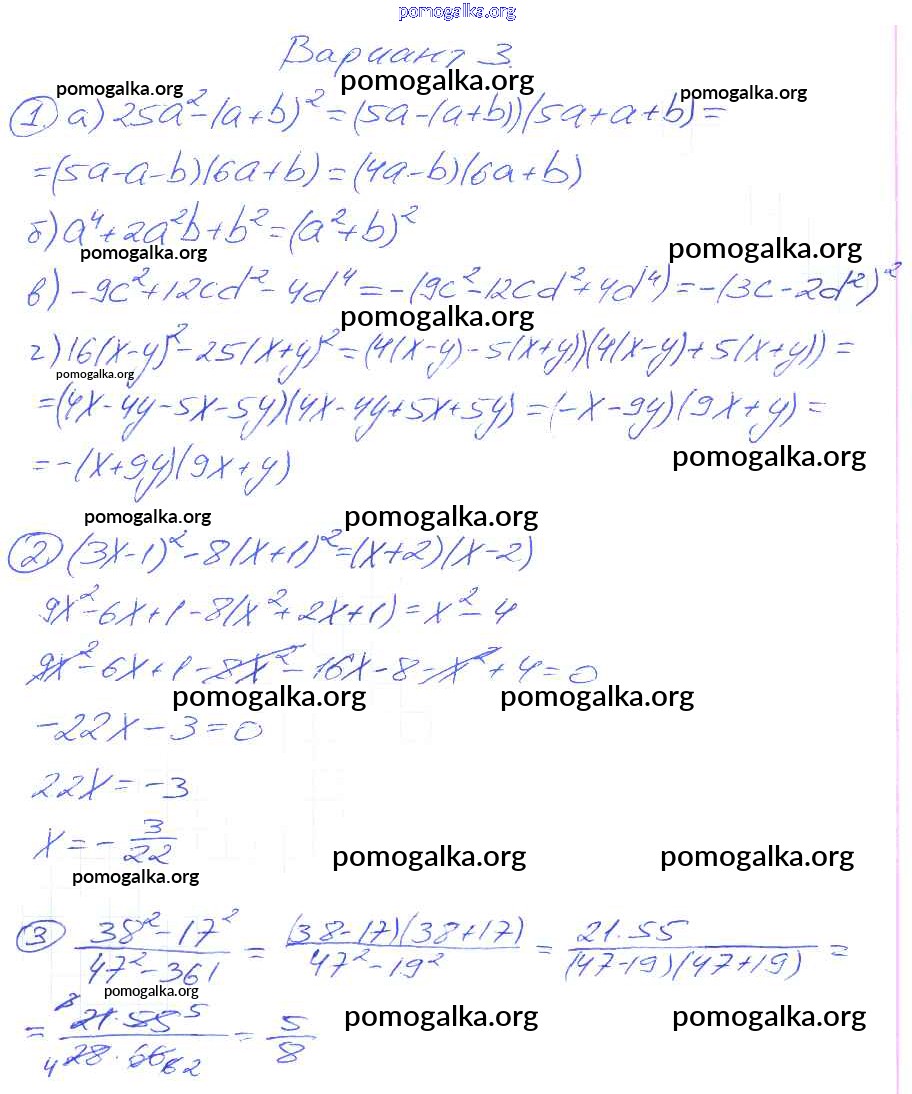 pomogalka.org
Вариант 3.
pomogalka.org pomogalka.org pomogalka.org
1. а) 25a² - (a+b)² = (5a-(a+b))(5a+a+b) =
= (5a-a-b)(6a+b) = (4a-b)(6a+b)
б) a⁴+2a²b+b² = (a²+b)²
pomogalka.org pomogalka.org
в) -9c²+12cd²-4d⁴ = -(9c²-12cd²+4d⁴) = -(3c-2d²)²
pomogalka.org
г) 16(x-y)²-25(x+y)² = (4(x-y)-5(x+y))(4(x-y)+5(x+y)) =
pomogalka.org
= (4x-4y-5x-5y)(4x-4y+5x+5y) = (-x-9y)(9x+y) =
pomogalka.org
= -(x+9y)(9x+y)
pomogalka.org pomogalka.org
2. (3x-1)²-8(x+1)² = (x+2)(x-2)
9x²-6x+1-8(x²+2x+1) = x²-4
9x²-6x+1-8x²-16x-8-x²+4=0
pomogalka.org pomogalka.org
-22x-3=0
22x=-3
x = -3/22
pomogalka.org pomogalka.org
pomogalka.org
3 (38²-17²)/(47²-361) = ((38-17)(38+17))/(47²-19²) = (21·55)/((47-19)(47+19)) =
pomogalka.org
pomogalka.org pomogalka.org
= (21·55)/(28·66) = 5/8